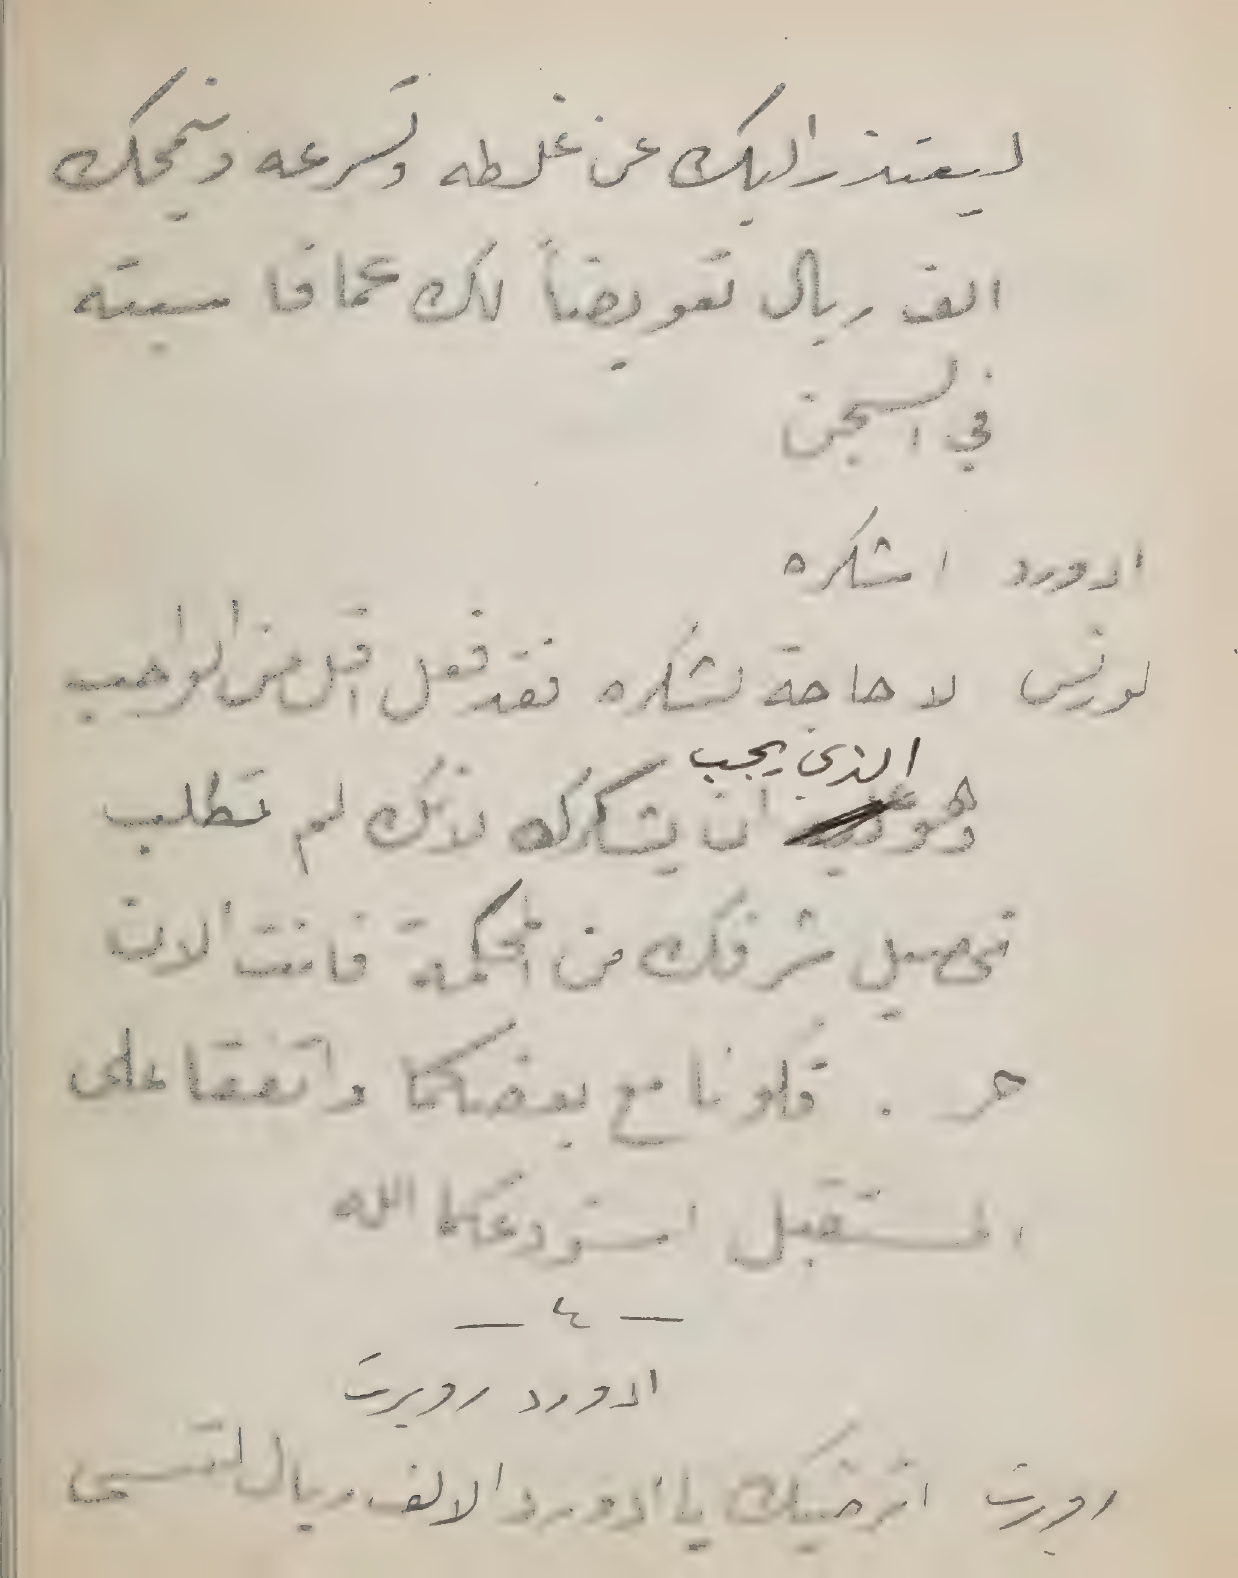 ليعتذر اليك عن غلطه وتسرعه ويمنحك
الف ريال تعويضاً لك عما قاسيته
في السجن
ادورد اشكره
لورنس لا حاجة لشكره فقد فعل اقل من الواجب
الذي يجب
وهو ان يشكرك لانك لم تطلب
تحصيل شرفك من المحكمة فانت الان
حر . فكونا مع بعضكما واتفقا على
المستقبل استودعكما الله
— ٤ —
ادورد روبرت
روبرت اترضيك يا ادورد الالف ريال لتنسى